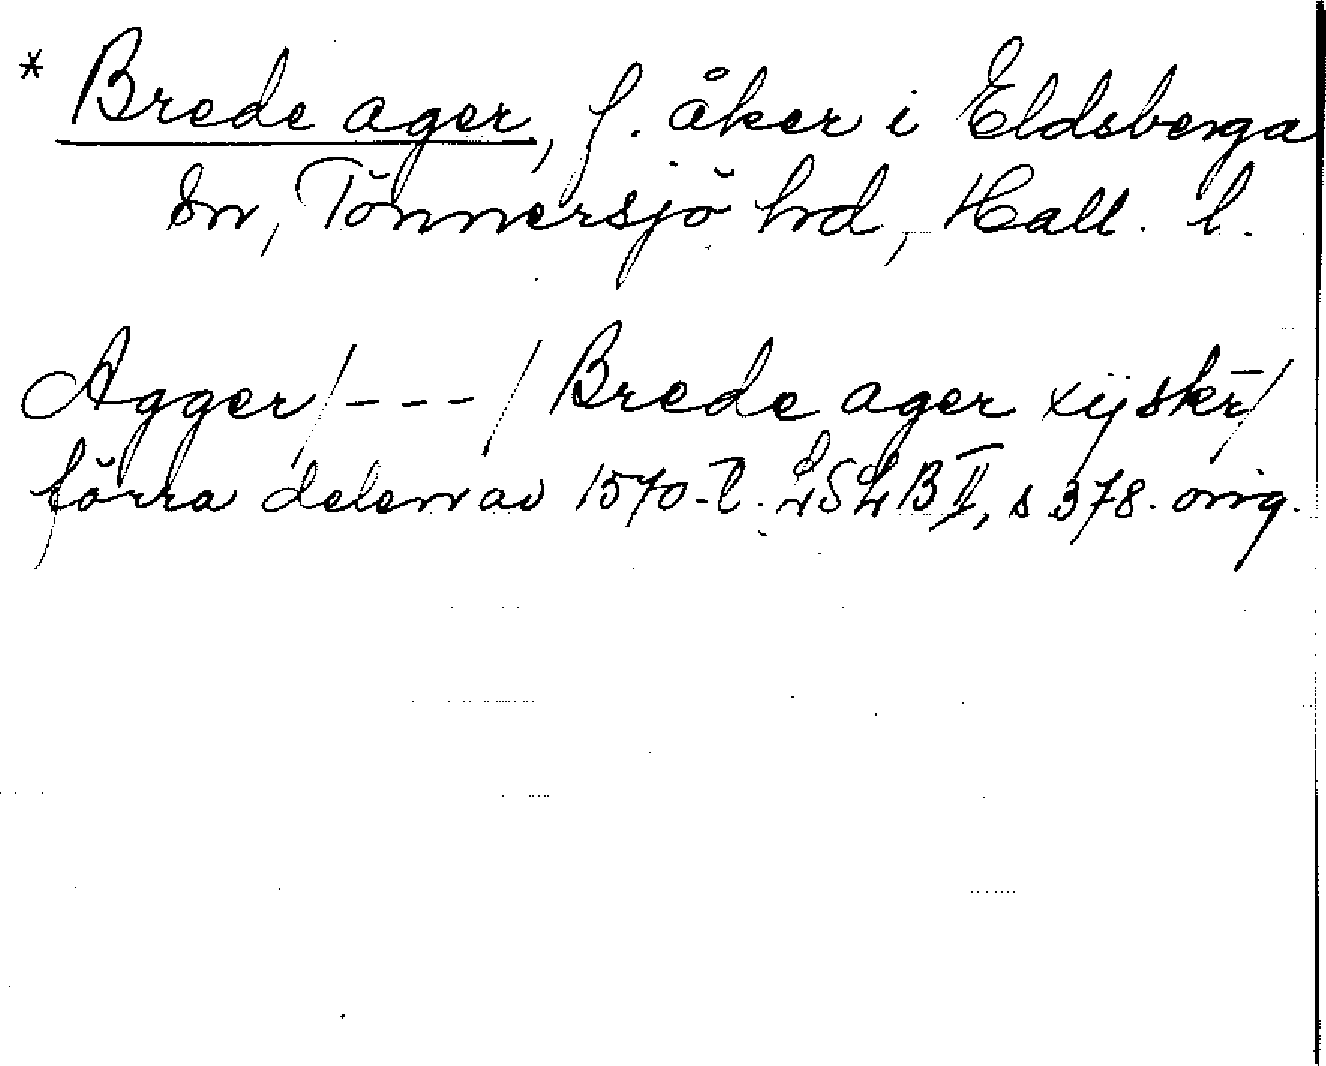 * Brede ager, f. åker i Eldsberga
sn, Tönnersjö hd, Hall. l.
Agger/---/ Brede ager xij skr̄/
förra delen av 1570-t. LSLB II, s 378. orig.